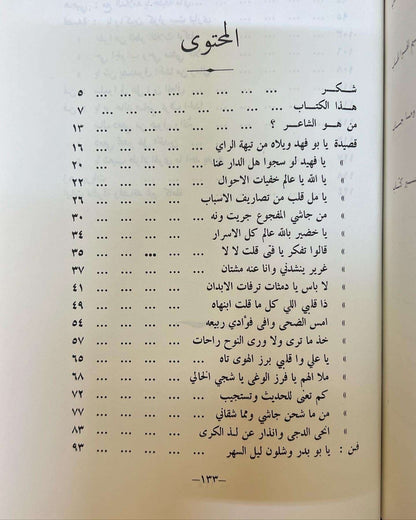 المحتوى
شكر ... ... ... ... ... ... ... ٥
هذا الكتاب ... ... ... ... ... ... ٧
من هو الشاعر ؟ ... ... ... ... ... ١٣
قصيدة يا بو فهد ويلاه من تيهة الراي ... ... ... ١٦
» يا فهيد لو سجوا هل الدار عنا ... ... ... ... ٢٠
» يا الله يا عالم خفيات الاحوال ... ... ... ... ٢٢
» يا مل قلب من تصاريف الاسباب ... ... ... ... ٢٦
» من جاشي المفجوع جريت ونه ... ... ... ... ٣٠
» يا خضير بالله عالم كل الاسرار ... ... ... ... ٣٤
» قالوا تفكر يا فتى قلت لا لا ... ... ... ... ٣٥
» غرير ينشدني وانا عنه مشتان ... ... ... ... ٣٧
» لا باس يا دمثات ترفات الابدان ... ... ... ... ٤١
» ذا قلبي اللي كل ما قلت ابنهاه ... ... ... ... ٤٩
» امس الضحى وافى فوادي ربيعه ... ... ... ... ٥٤
» خذ ما ترى ولا ورى النوح راحات ... ... ... ... ٥٧
» يا علي وا قلبي برز الهوى تاه ... ... ... ... ٦٥
» ملا الهم يا فرز الوغى يا شجي الخالي ... ... ... ٦٨
» كم تعنى للحديث وتستجيب ... ... ... ... ٧٢
» من ما شحن جاشي ومما شقاني ... ... ... ... ٧٧
» انحى الدجى وانذار عن لذ الكرى ... ... ... ... ٨٣
فن : يا بو بدر وشلون ليل السهر ... ... ... ... ٩٣
—١٣٣—